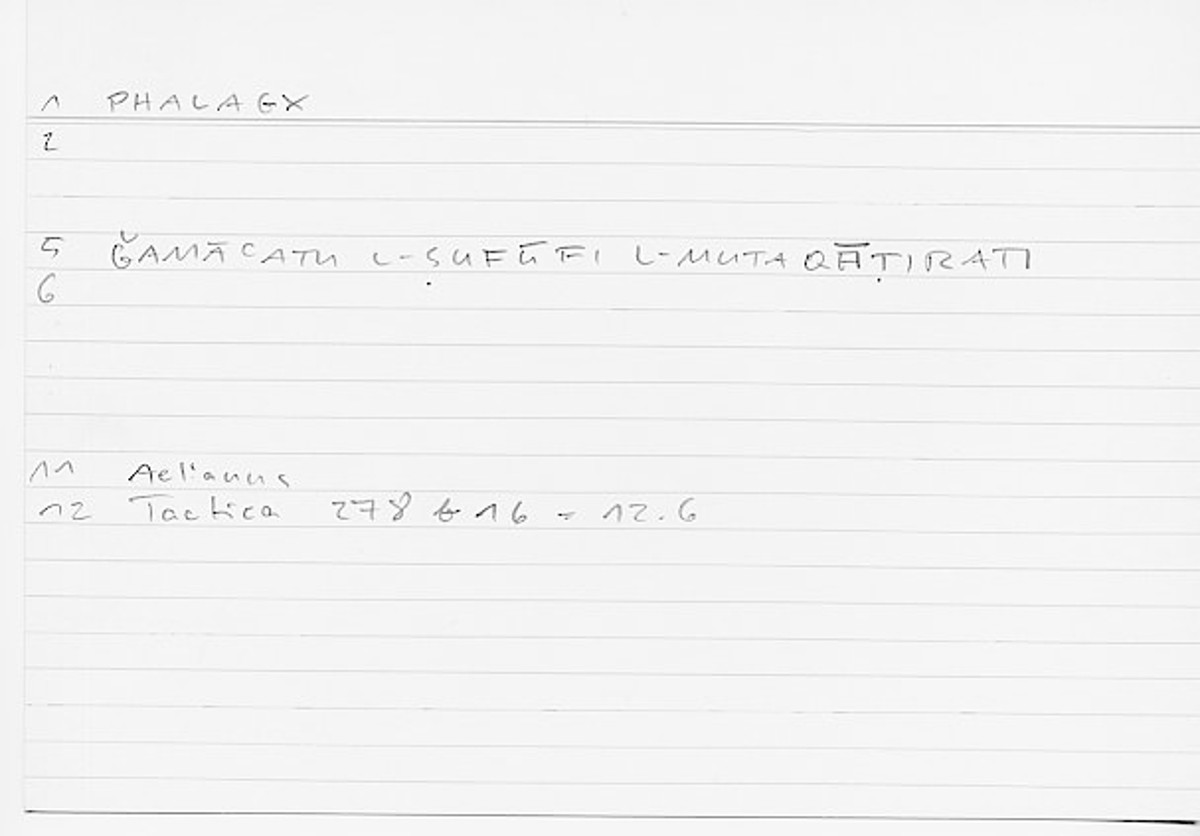 1 PHALAGX
2
5 ǦAMĀʿATU L-ṢUFŪFI L-MUTAQĀṬIRATI
6
11 Aelianus
12 Tactica 278 b 16 - 12.6